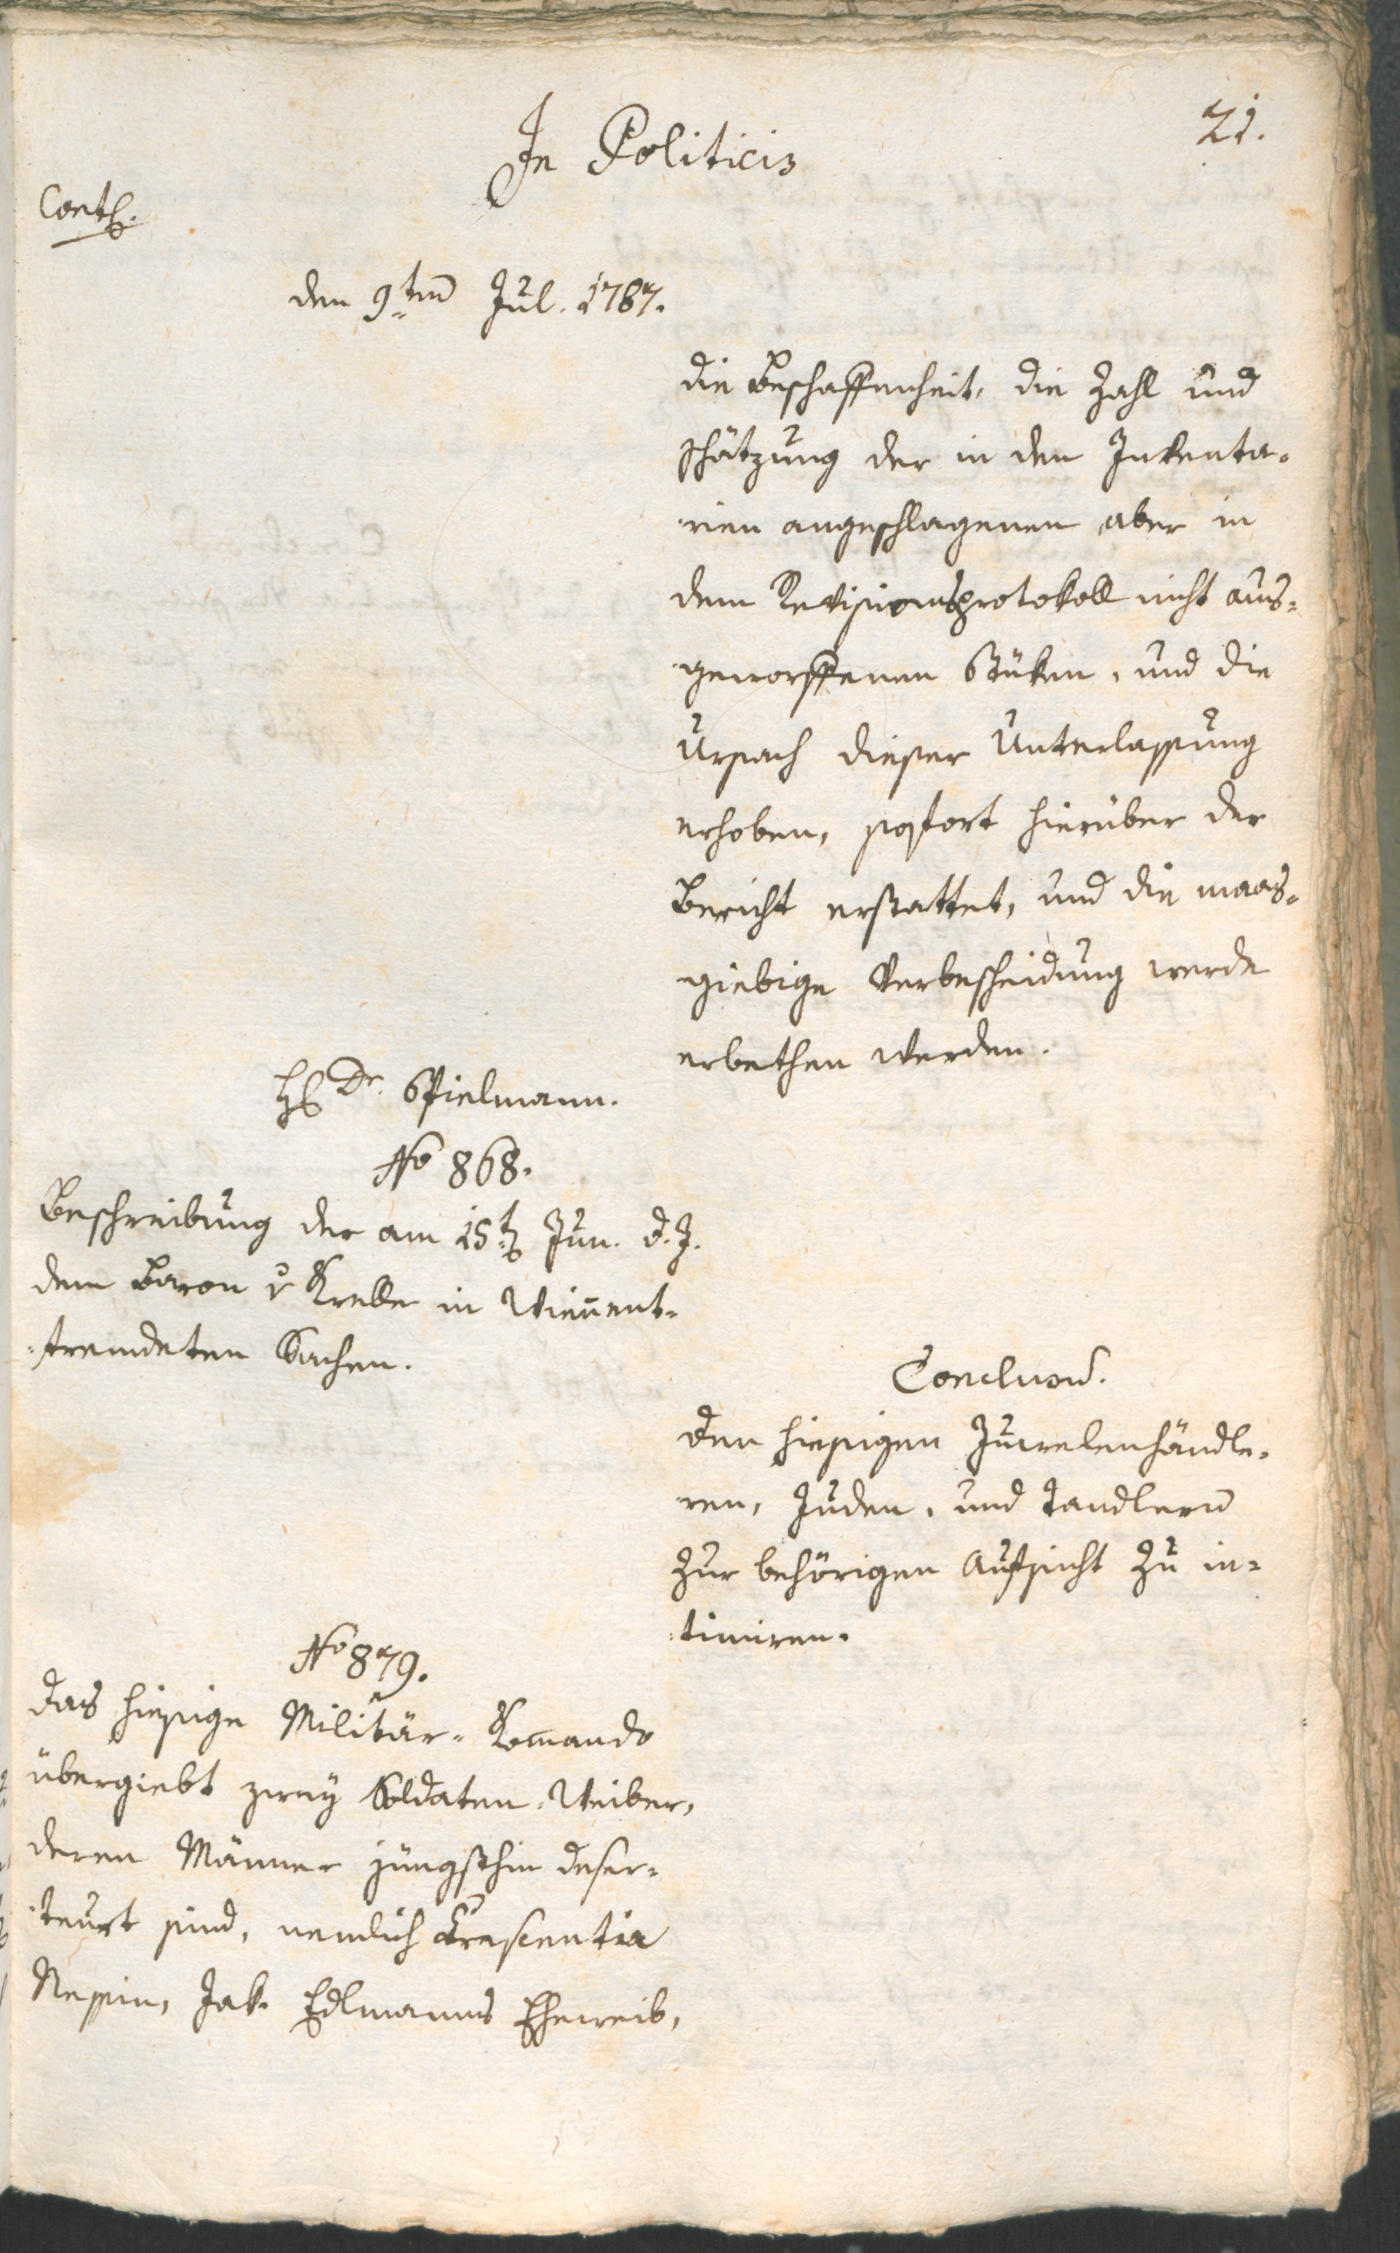 21.
In Politicis
Cont.
den 9ten Jul. 1787.
die Beschaffenheit, die Zahl und
schätzung der in den Inventa-
rien angeschlagenen aber in
dem Revisionsprotokoll nicht aus-
geworffenen Stüken, und die
Ursach dieser Unterlassung
erhoben, sofort hierüber der
Bericht erstattet, und die maas-
giebige Verbescheidung werde
erbethen werden.
H Dr. Spielmann.
No 868.
Beschreibung der am 15t Jun. d. J.
dem Baron v Krelle in Wien ent-
fremdeten Sachen.
Conclusū.
Den hiesigen Juwelenhändle-
ren, Juden, und Tandlern
zur behörigen Aufsicht zu in-
timiren.
No 879.
Das hiesige Militär-Komando
übergiebt zwey Soldaten-Weiber,
deren Männer jüngsthin deser-
teurt sind, nemlich Crescentia
Nessin, Jak. Edlmanns Eheweib,